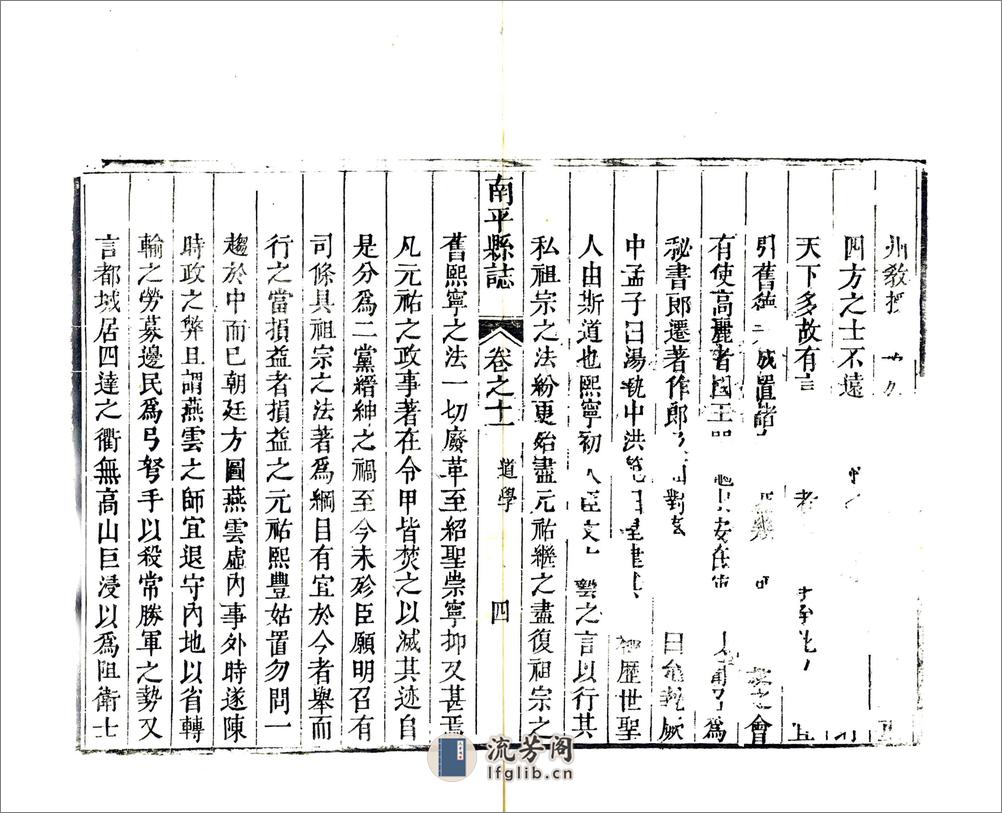 州教授
四方之士不遠
天下多故有言
引舊 置諸 會
有使高麗者國王 安在 為
秘書郎遷著作郎 面對 曰堯 厥
中孟子曰湯執中洪範曰皇建其 極歷世聖
人由斯道也熙寧初大臣文 之言以行其
私祖宗之法紛更殆盡元祐繼之盡復祖宗之
南平縣誌 卷之十 道學 四
舊熙寧之法一切廢革至紹聖崇寧抑又甚焉
凡元祐之政事著在令甲皆焚之以滅其迹自
是分為二黨縉紳之禍至今未殄臣願明召有
司條具祖宗之法著為綱目有宜於今者舉而
行之當損益者損益之元祐熙豐姑置勿問一
趨於中而已朝廷方圖燕雲虛內事外時遂陳
時政之弊且謂燕雲之師宜退守內地以省轉
輸之勞募邊民為弓弩手以殺常勝軍之勢又
言都城居四達之衢無高山巨浸以為阻衛士
流芳阁
lfglib.cn